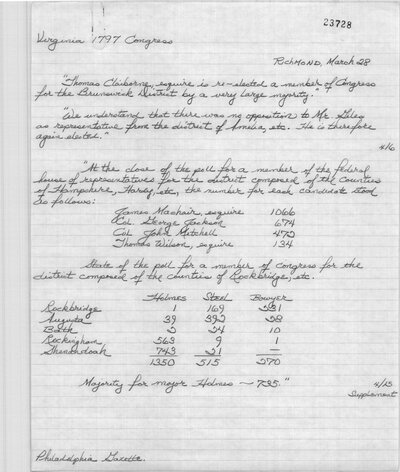 23728
Virginia 1797 Congress
Richmond, March 28
"Thomas Claiborne, esquire is re-elected a member of Congress
for the Brunswick District by a very large majority."
"We understand that there was no opposition to Mr. Giles
as representative from the district of Amelia, etc. He is therefore
again elected."
4/6
"At the close of the poll for a member of the federal
house of representatives for the district composed of the Counties
of Hampshire, Hardy, etc, the number for each candidate stood
as follows:
James Machair, esquire 1066
Col. George Jackson 674
Col John Mitchell 472
Thomas Wilson, esquire 134
State of the poll for a member of congress for the
district composed of the counties of Rockbridge, etc.
Holmes Steel Bowyer
Rockbridge 1 169 231
Augusta 39 292 28
Bath 2 24 10
Rockingham 563 9 1
Shenandoah 743 21 —
1350 515 270
Majority for major Holmes — 735."
4/25
Supplement
Philadelphia Gazette.